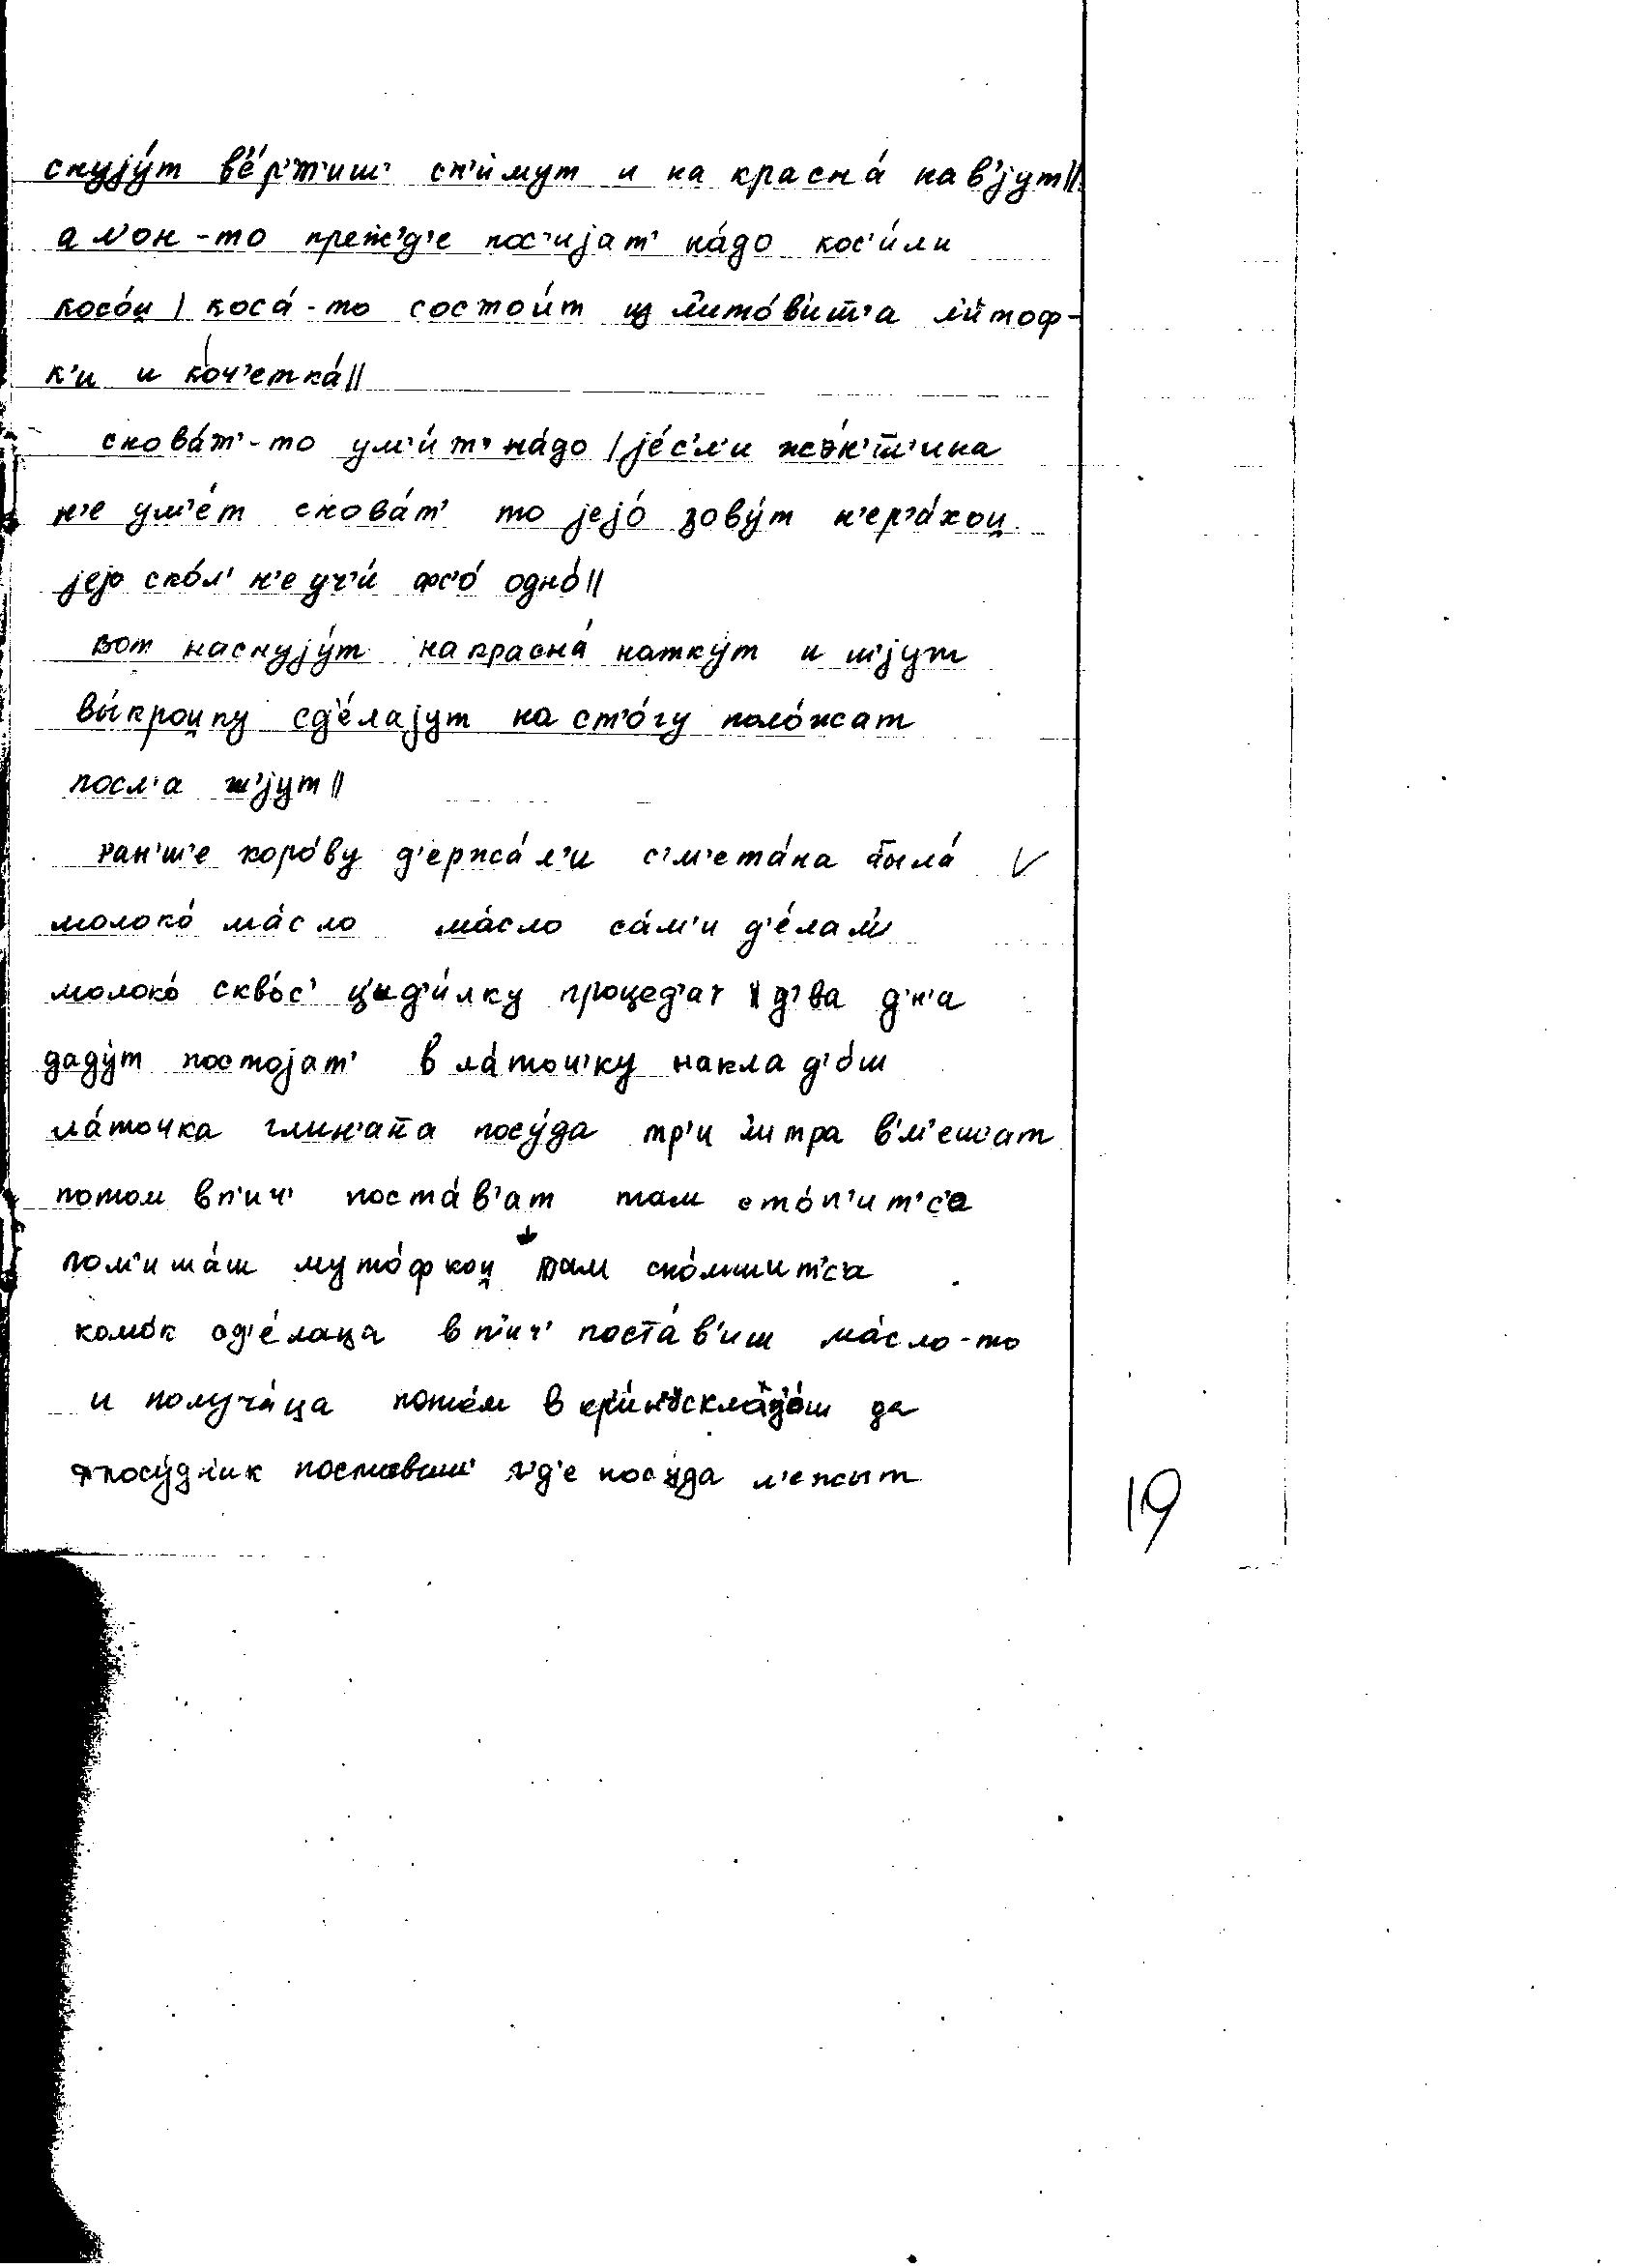 снују́т в'е́р'т'иш' сн'и́мут и на красна́ нав'јут||
а л'он-то преж'д'е пос'ијат' на́до кос'и́ли
косо́и̯ | коса́-то состои́т из̯ л'ито́в'ит'а л'и́тоф-
к'и и коч'етка́||
снова́т'-то ум'и́т' на́до | је́с'л'и жэ́н'ш'ина
н'е ум'е́т снова́т' то јејо́ зову́т н'ер'а́хои̯
јејо ско́л' н'е уч'и́ фс'о́ одно́||
вот наснују́т на красна́ наткут и ш'јут
вы́крои̯ку сд'е́лајут на ст'о́гу поло́жат
посл'а ш'јут||
ран'ш'е коро́ву д'ержа́л'и с'м'ета́на была́
молоко́ ма́сло ма́сло са́м'и д'е́лал'и
молоко́ скво́с' цыд'и́лку процед'ат д'ва д'н'а
даду́т постојат' в ла́точ'ку накла д'о́ш
ла́точка глин'ана посу́да тр'и л'итра в'м'еш'ат
потом в п'ич' поста́в'ат там сто́п'ит'са
пом'иша́ш муто́фкои̯ там ско́мшит'са
комо́к сд'е́лаца в п'ич' поста́в'иш ма́сло-то
и получа́ца пото́м в кр'и́нк склад'о́ш да
посу́дн'ик поставиш' г'д'е посуда л'ежыт
19